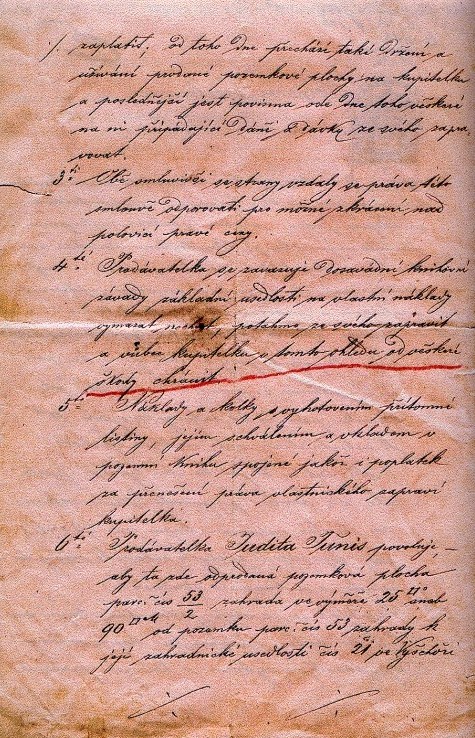 ·/. zaplatit. od toho dne přechází také držení a
užívání prodané pozemkové plochy na kupitelku
a poslednější jest povinna ode dne toho veškeré
na ni připadající daně & dávky ze svého zapra-
vovat.
3tí Obě smluvivší se strany vzdaly se práva této
smlouvě odporovati pro možné zkrácení nad
polovici pravé ceny.
4té Prodávatelka se zavazuje dosavadní knihovní
závady základní usedlosti na vlastní náklady
vymazat nechat, potahmo ze svého zapravit
a vůbec kupitelku v tomto ohledu od veškeré
škody chránit.
5té Náklady a kolky s vyhotovením přítomné
listiny, jejím schválením a vkladem v
pozemn. knihu spojené jakož i poplatek
za přenešení práva vlastnického zapraví
kupitelka.
6té Prodávatelka Judita Tůnis povoluje, —
aby ta zde odprodaná pozemková plocha
parc. čís 53/2 zahrada ve výměře 25 aneb
90 od pozemku parc. čís 53 zahrady k
její zahradnické usedlosti čís 21 ve